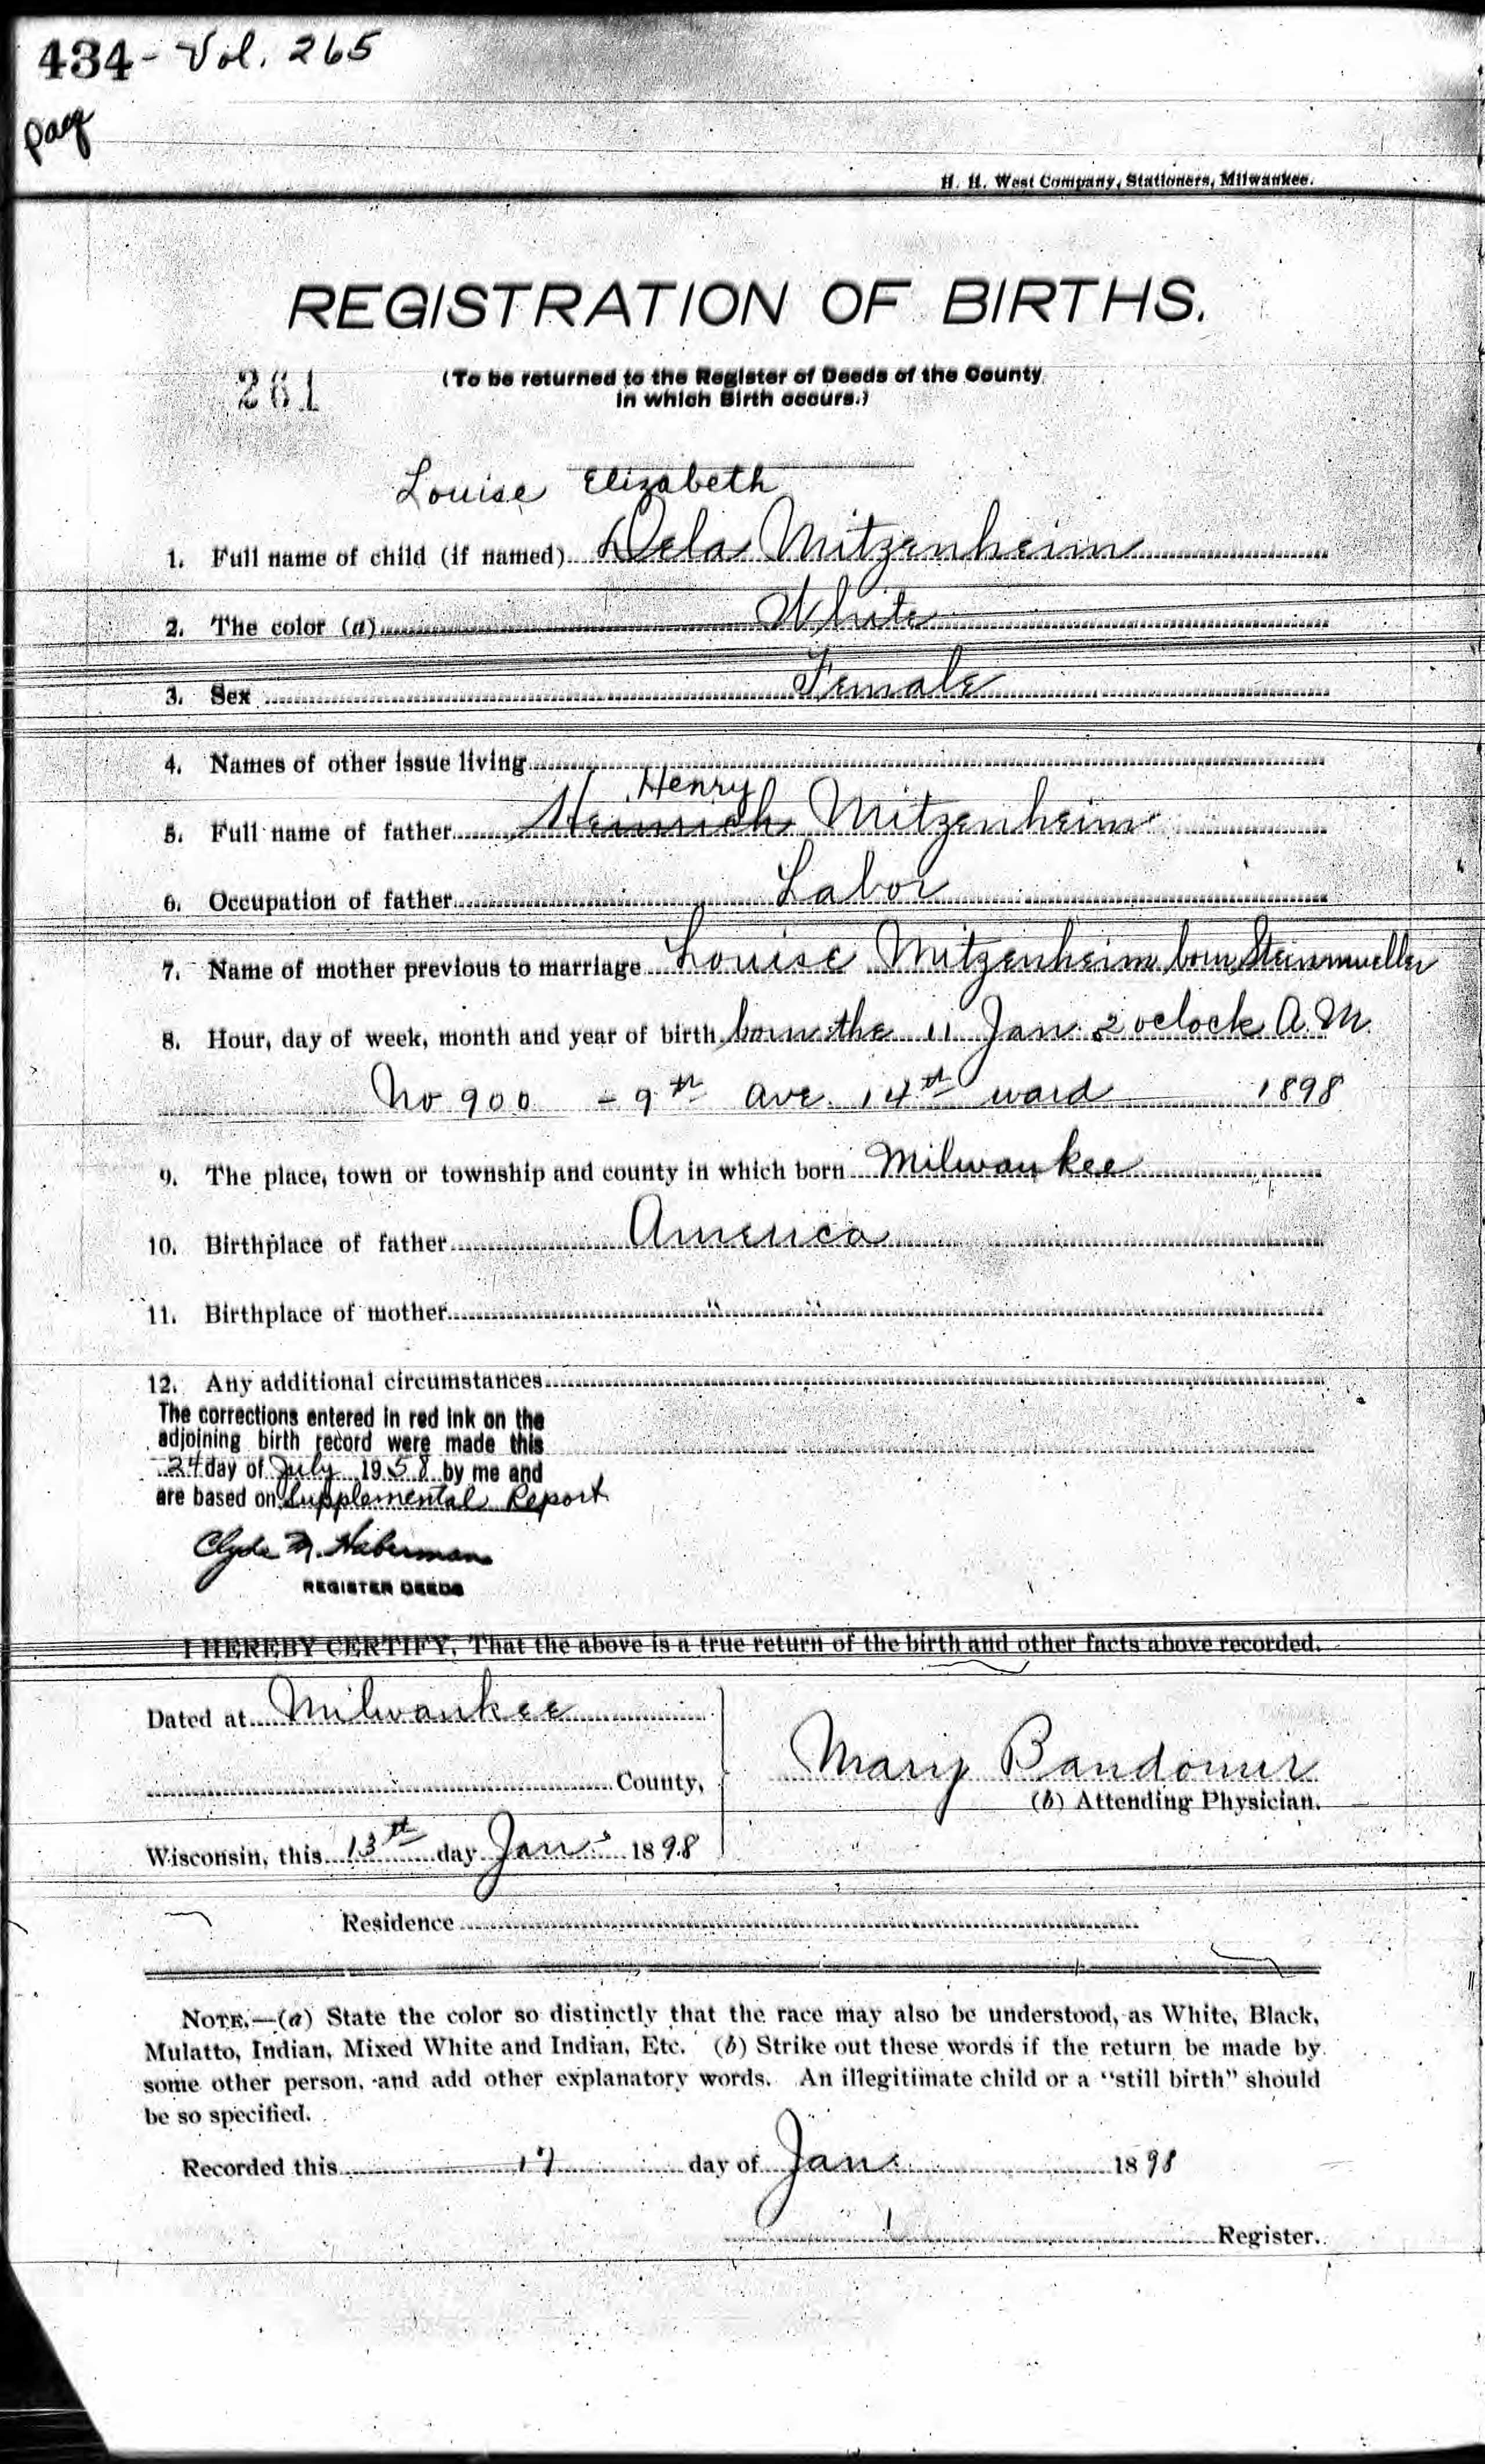 434- Vol. 265
page
H. H. West Company, Stationers, Milwaukee.
REGISTRATION OF BIRTHS.
261
(To be returned to the Register of Deeds of the County
in which Birth occurs.)
Louise Elizabeth
1. Full name of child (if named) Dela Mitzenheim
2. The color (a) White
3. Sex Female
4. Names of other issue living
Henry
5. Full name of father Heinrich Mitzenheim
6. Occupation of father Labor
7. Name of mother previous to marriage Louise Mitzenheim born Steinmueller
8. Hour, day of week, month and year of birth born the 11 Jan. 2 oclock A. M.
No 900 - 9th ave. 14th ward 1898
9. The place, town or township and county in which born Milwaukee
10. Birthplace of father America
11. Birthplace of mother " "
12. Any additional circumstances
The corrections entered in red ink on the
adjoining birth record were made this
24 day of July 1958 by me and
are based on Supplemental Report
Clyde M. Haberman
REGISTER DEEDS
I HEREBY CERTIFY, That the above is a true return of the birth and other facts above recorded.
Dated at Milwaukee
County,
Mary
(b) Attending Physician.
Wisconsin, this 13th day Jan 1898
Residence
NOTE.—(a) State the color so distinctly that the race may also be understood, as White, Black,
Mulatto, Indian, Mixed White and Indian, Etc. (b) Strike out these words if the return be made by
some other person, and add other explanatory words. An illegitimate child or a "still birth" should
be so specified.
Recorded this 17 day of Jan. 1898
Register.